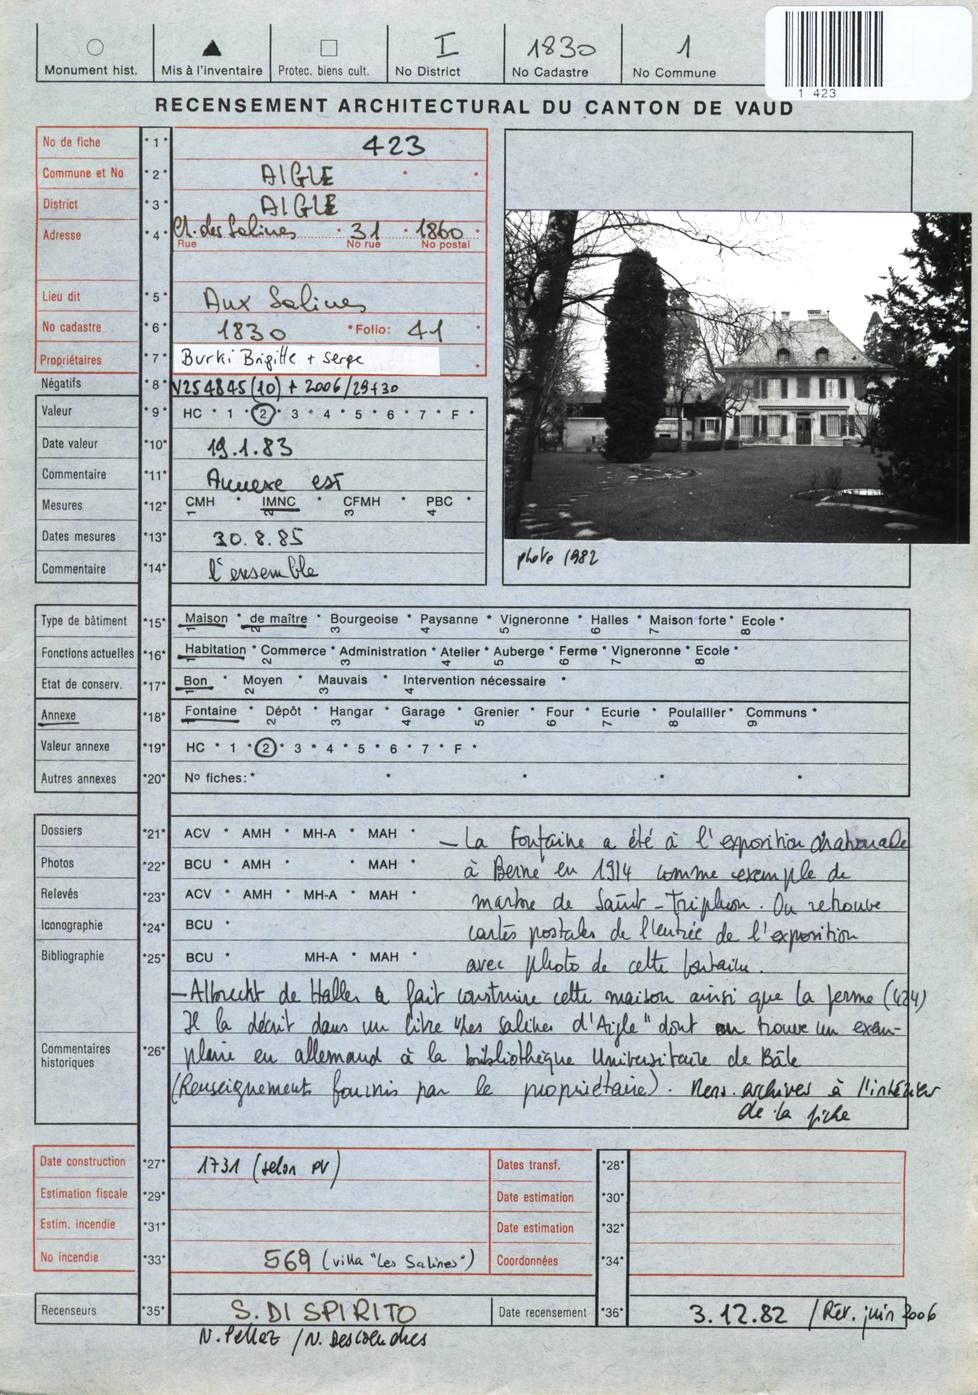 Monument hist. Mis à l'inventaire Protec. biens cult. I No District 1830 No Cadastre 1 No Commune
1 423
RECENSEMENT ARCHITECTURAL DU CANTON DE VAUD
No de fiche *1* 423
Commune et No *2* AIGLE
District *3* AIGLE
Adresse *4* Ch. des Salines 31 1860
Rue No rue No postal
Lieu dit *5* Aux Salines
No cadastre *6* 1830 *Folio: 41
Propriétaires *7* Burki Brigitte + Serge
Négatifs *8* V254845(10) + 2006/29+30
Valeur *9* HC * 1 * 2 * 3 * 4 * 5 * 6 * 7 * F *
Date valeur *10* 19.1.83
Commentaire *11* Annexe est
Mesures *12* CMH * IMNC * CFMH * PBC *
1 2 3 4
Dates mesures *13* 30.8.85
Commentaire *14* l'ensemble
photo 1982
Type de bâtiment *15* Maison * de maître * Bourgeoise * Paysanne * Vigneronne * Halles * Maison forte * Ecole *
1 2 3 4 5 6 7 8
Fonctions actuelles *16* Habitation * Commerce * Administration * Atelier * Auberge * Ferme * Vigneronne * Ecole *
1 2 3 4 5 6 7 8
Etat de conserv. *17* Bon * Moyen * Mauvais * Intervention nécessaire *
1 2 3 4
Annexe *18* Fontaine * Dépôt * Hangar * Garage * Grenier * Four * Ecurie * Poulailler * Communs *
1 2 3 4 5 6 7 8 9
Valeur annexe *19* HC * 1 * 2 * 3 * 4 * 5 * 6 * 7 * F *
Autres annexes *20* No fiches: * * * * *
Dossiers *21* ACV * AMH * MH-A * MAH * – La Fontaine a été à l'exposition nationale
Photos *22* BCU * AMH * * MAH * à Berne en 1914 comme exemple de
Relevés *23* ACV * AMH * MH-A * MAH * marbre de Saint-Triphon. On retrouve
Iconographie *24* BCU * cartes postales de l'entrée de l'exposition
Bibliographie *25* BCU * MH-A * MAH * avec photo de cette fontaine.
– Albrecht de Haller a fait construire cette maison ainsi que la ferme (424)
Il la décrit dans un livre "Les Salines d'Aigle" dont on trouve un exem-
Commentaires historiques *26* plaire en allemand à la bibliothèque Universitaire de Bâle
(Renseignements fournis par le propriétaire). Rens. archives à l'intérieur
de la fiche
Date construction *27* 1731 (selon PV) Dates transf. *28*
Estimation fiscale *29* Date estimation *30*
Estim. incendie *31* Date estimation *32*
No incendie *33* 569 (villa "Les Salines") Coordonnées *34*
Recenseurs *35* S. DI SPIRITO Date recensement *36* 3.12.82 / Rév. juin 2006
N. Pellaz / N. Descoendres